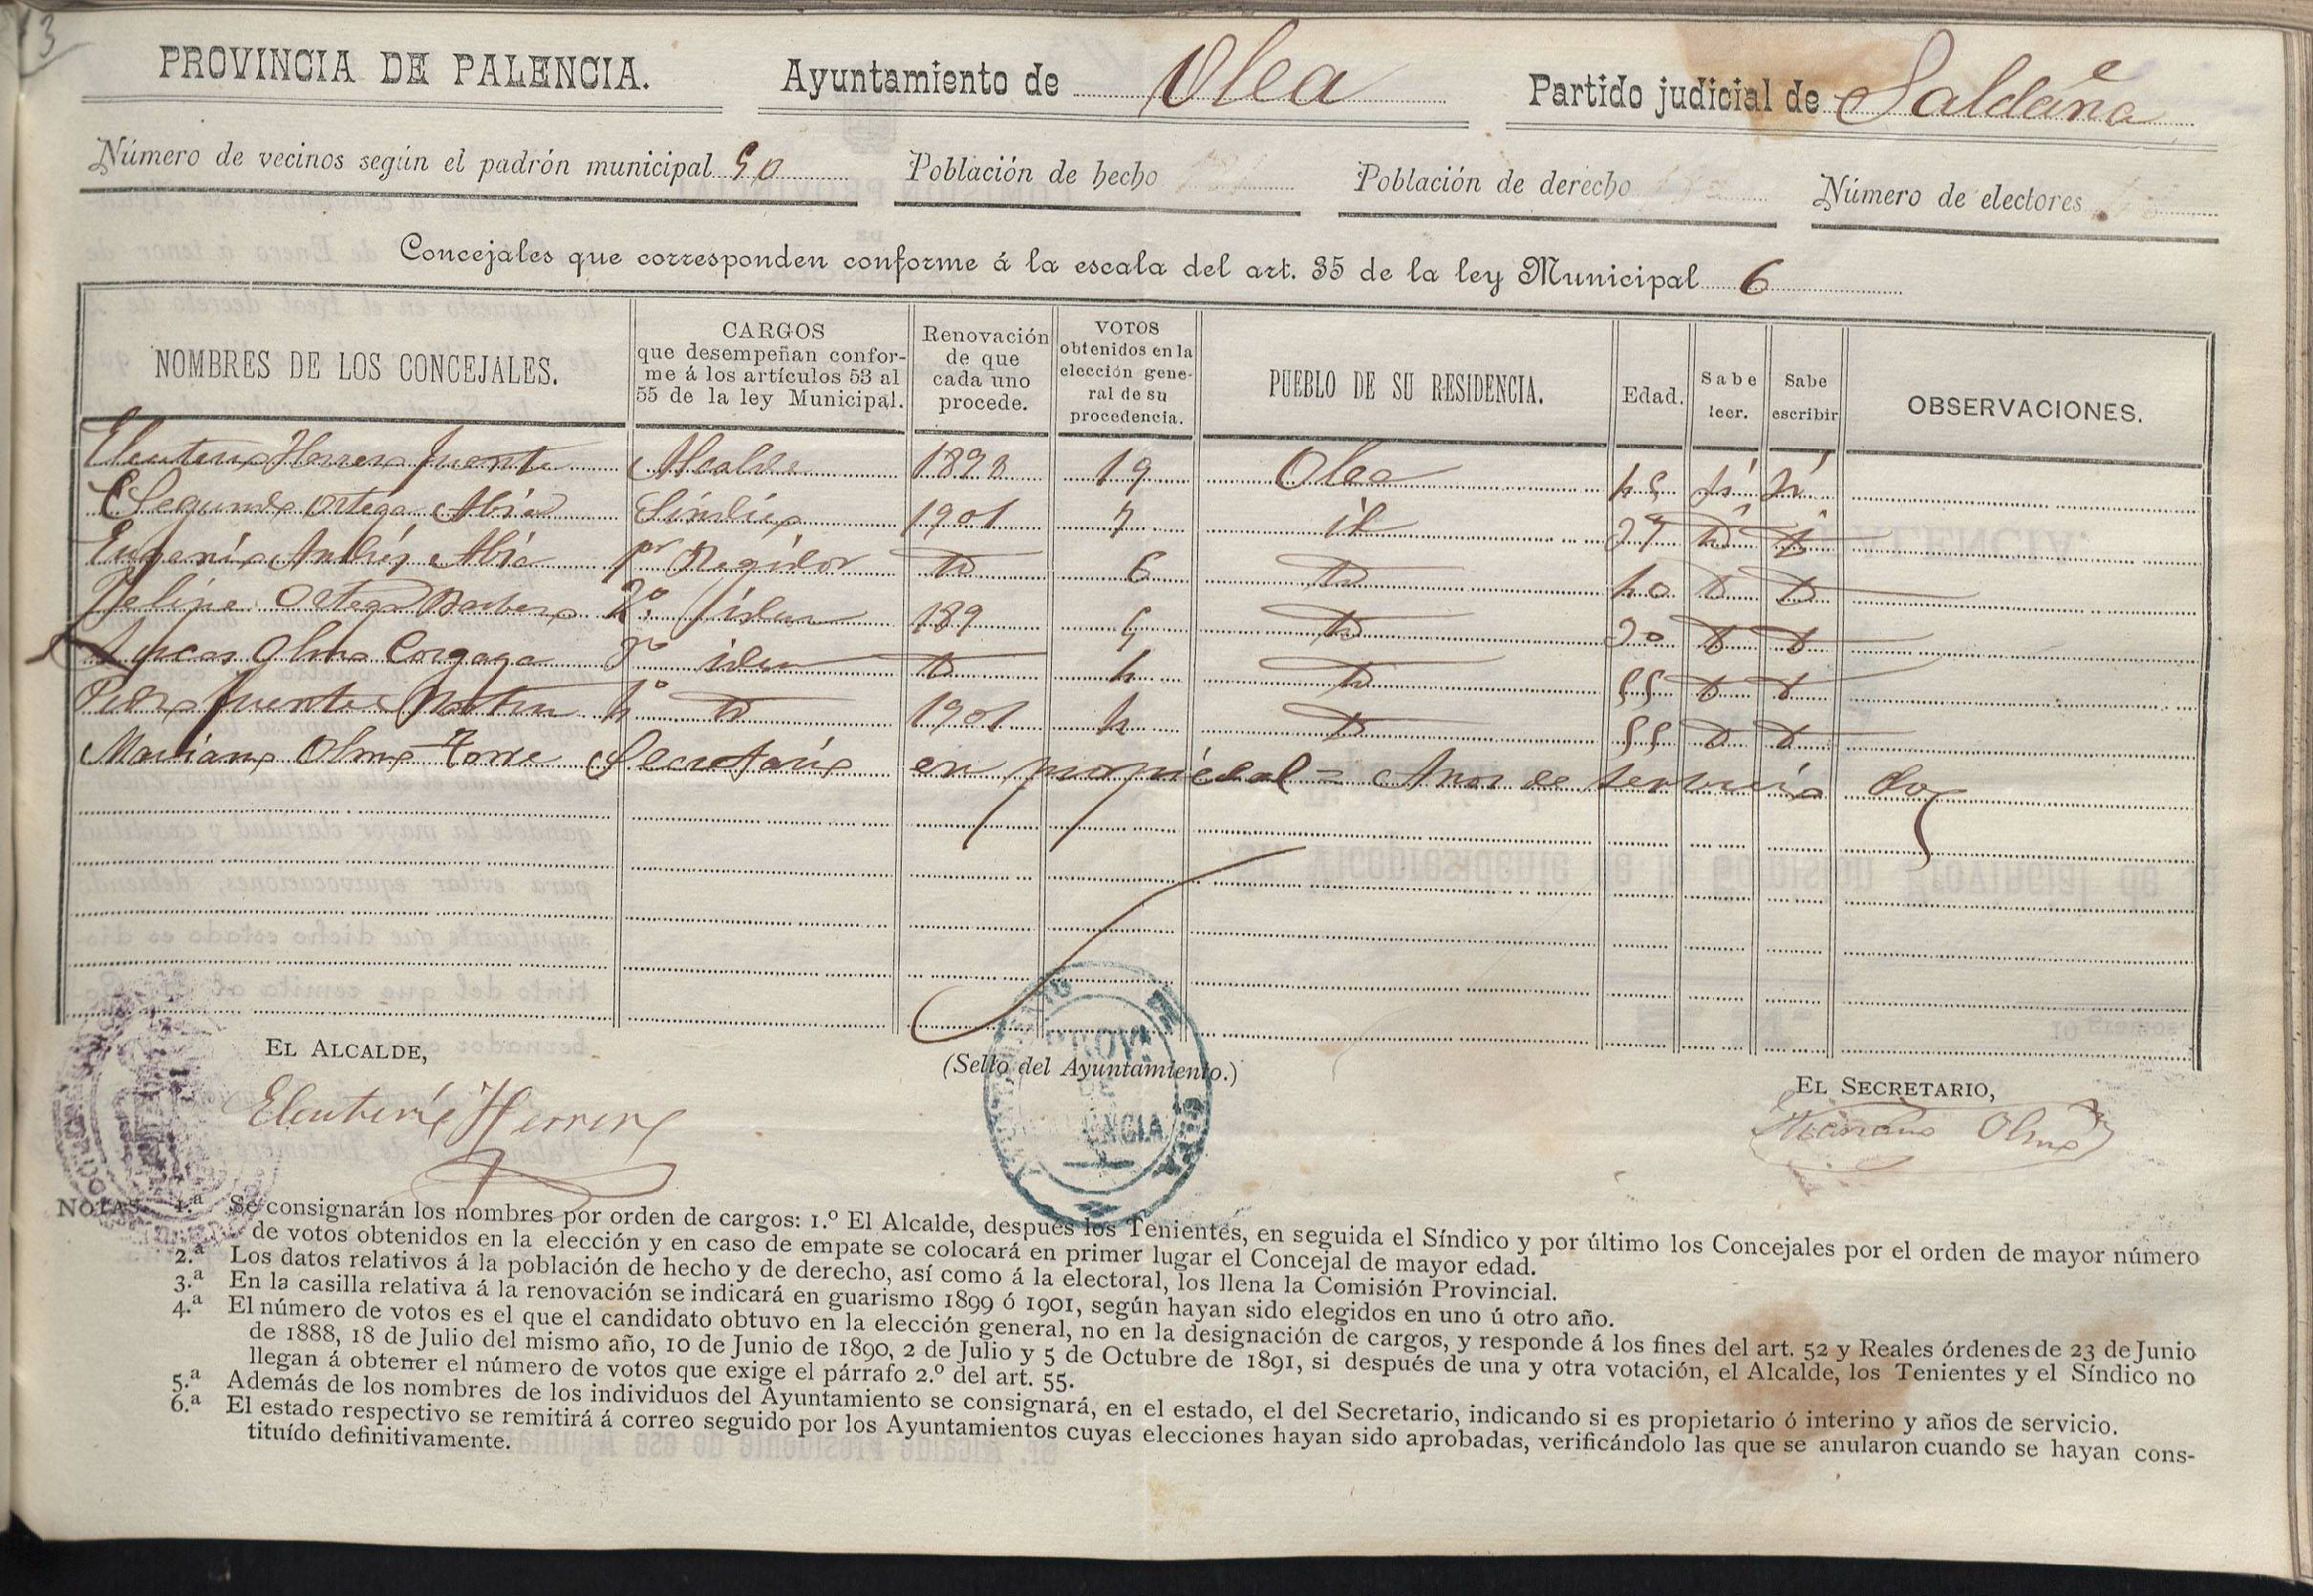 13
PROVINCIA DE PALENCIA. Ayuntamiento de Olea Partido judicial de Saldaña
Número de vecinos según el padrón municipal 50 Población de hecho Población de derecho Número de electores
Concejales que corresponden conforme á la escala del art. 35 de la ley Municipal 6
NOMBRES DE LOS CONCEJALES.
CARGOS
que desempeñan confor-
me á los artículos 53 al
55 de la ley Municipal.
Renovación
de que
cada uno
procede.
VOTOS
obtenidos en la
elección gene-
ral de su
procedencia.
PUEBLO DE SU RESIDENCIA.
Edad.
Sabe
leer.
Sabe
escribir
OBSERVACIONES.
Eleuterio Herrero fuente Alcalde 1899 19 Olea 45 Sí Sí
Segundo Ortega Abia Síndico 1901 7 id
Eugenio Andrés Abia 1er Regidor Id 6 Id 40 Id Id
Felipe Ortega Barbero 2º idem 189 5 Id 30 Id Id
Lucas Olmo 3º idem Id 4 Id 55 Id Id
Pedro fuente Martin 4º Id 1901 4 Id 55 Id Id
Mariano Olmo Torre Secretario en propiedad = Años de servicio dos
EL ALCALDE,
(Sello del Ayuntamiento.)
EL SECRETARIO,
Eleuterio Herrero
Mariano Olmo
PROV.
DE
PALENCIA
NOTAS 1.ª Se consignarán los nombres por orden de cargos: 1.º El Alcalde, después los Tenientes, en seguida el Síndico y por último los Concejales por el orden de mayor número
de votos obtenidos en la elección y en caso de empate se colocará en primer lugar el Concejal de mayor edad.
2.ª Los datos relativos á la población de hecho y de derecho, así como á la electoral, los llena la Comisión Provincial.
3.ª En la casilla relativa á la renovación se indicará en guarismo 1899 ó 1901, según hayan sido elegidos en uno ú otro año.
4.ª El número de votos es el que el candidato obtuvo en la elección general, no en la designación de cargos, y responde á los fines del art. 52 y Reales órdenes de 23 de Junio
de 1888, 18 de Julio del mismo año, 10 de Junio de 1890, 2 de Julio y 5 de Octubre de 1891, si después de una y otra votación, el Alcalde, los Tenientes y el Síndico no
llegan á obtener el número de votos que exige el párrafo 2.º del art. 55.
5.ª Además de los nombres de los individuos del Ayuntamiento se consignará, en el estado, el del Secretario, indicando si es propietario ó interino y años de servicio.
6.ª El estado respectivo se remitirá á correo seguido por los Ayuntamientos cuyas elecciones hayan sido aprobadas, verificándolo las que se anularon cuando se hayan cons-
tituído definitivamente.